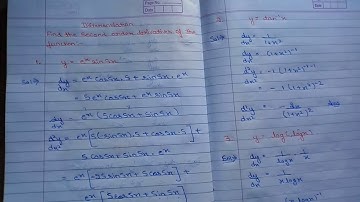 Differentiation
Find the second order derivatives of the
function:
1. y = eˣ sin5x
Solⁿ dy/dx = eˣ cos5x.5 + sin5x.eˣ
= 5eˣ cos5x + eˣ sin5x
dy/dx = eˣ (5cos5x + sin5x)
d²y/dx² = eˣ [5(-sin5x).5 + cos5x.5] +
5cos5x + sin5x.eˣ
= eˣ [-25 sin5x + 5cos5x] +
eˣ [5cos5x + sin5x]
2. y = tan⁻¹x
Solⁿ dy/dx = 1/(1+x²)
dy/dx = (1+x²)⁻¹
d²y/dx² = -1 (1+x²)⁻²
= -1 (1+x²)⁻²
3. y = log(logx)
Solⁿ dy/dx = 1/logx . 1/x
dy/dx = 1/(x logx)